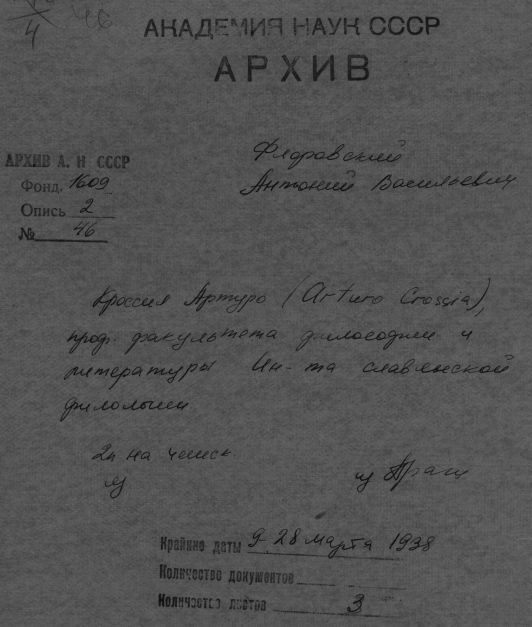 4
46
АКАДЕМИЯ НАУК СССР
АРХИВ
АРХИВ А. Н СССР
Фонд. 1609
Опись 2
№ 46
Флоровский
Антоний Васильевич
Кроссия Артуро (Arturo Crossia),
проф. факультета философии и
литературы Ин-та славянской
филологии
2п на чешск.
яз
из Праги
Крайние даты 9-28 марта 1938
Количество документов
Количество листов 3